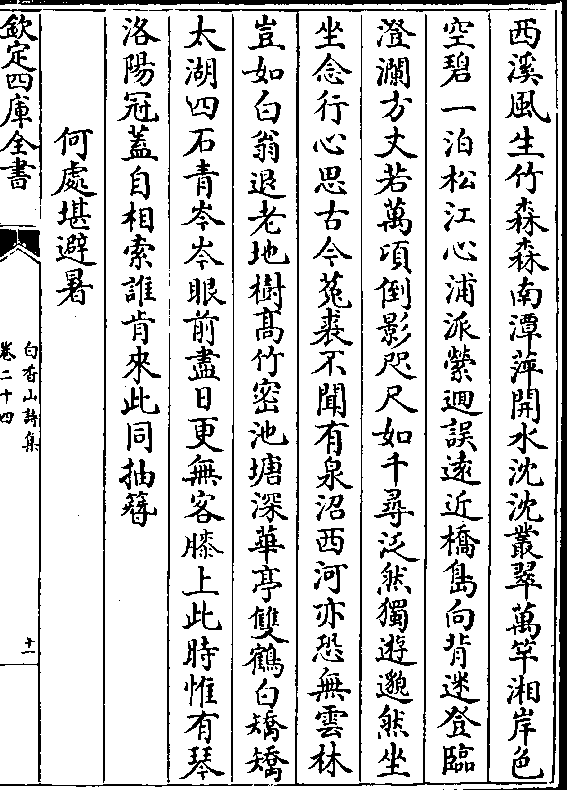 西溪風生竹森森南潭萍開水沈沈叢翠萬竿湘岸色
空碧一泊松江心浦派縈迴誤遠近橋島向背迷登臨
澄瀾方丈若萬項倒影咫尺如千尋泛然獨遊邈然坐
坐念行心思古今菟裘不聞有泉沼西河亦恐無雲林
豈如白翁退老地樹髙竹密池塘深華亭雙鶴白矯矯
太湖四石青岑岑眼前盡日更無客膝上此時惟有琴
洛陽冠蓋自相索誰肯來此同抽簮
何處堪避暑
欽定四庫全書
白香山詩集
卷二十四
十一